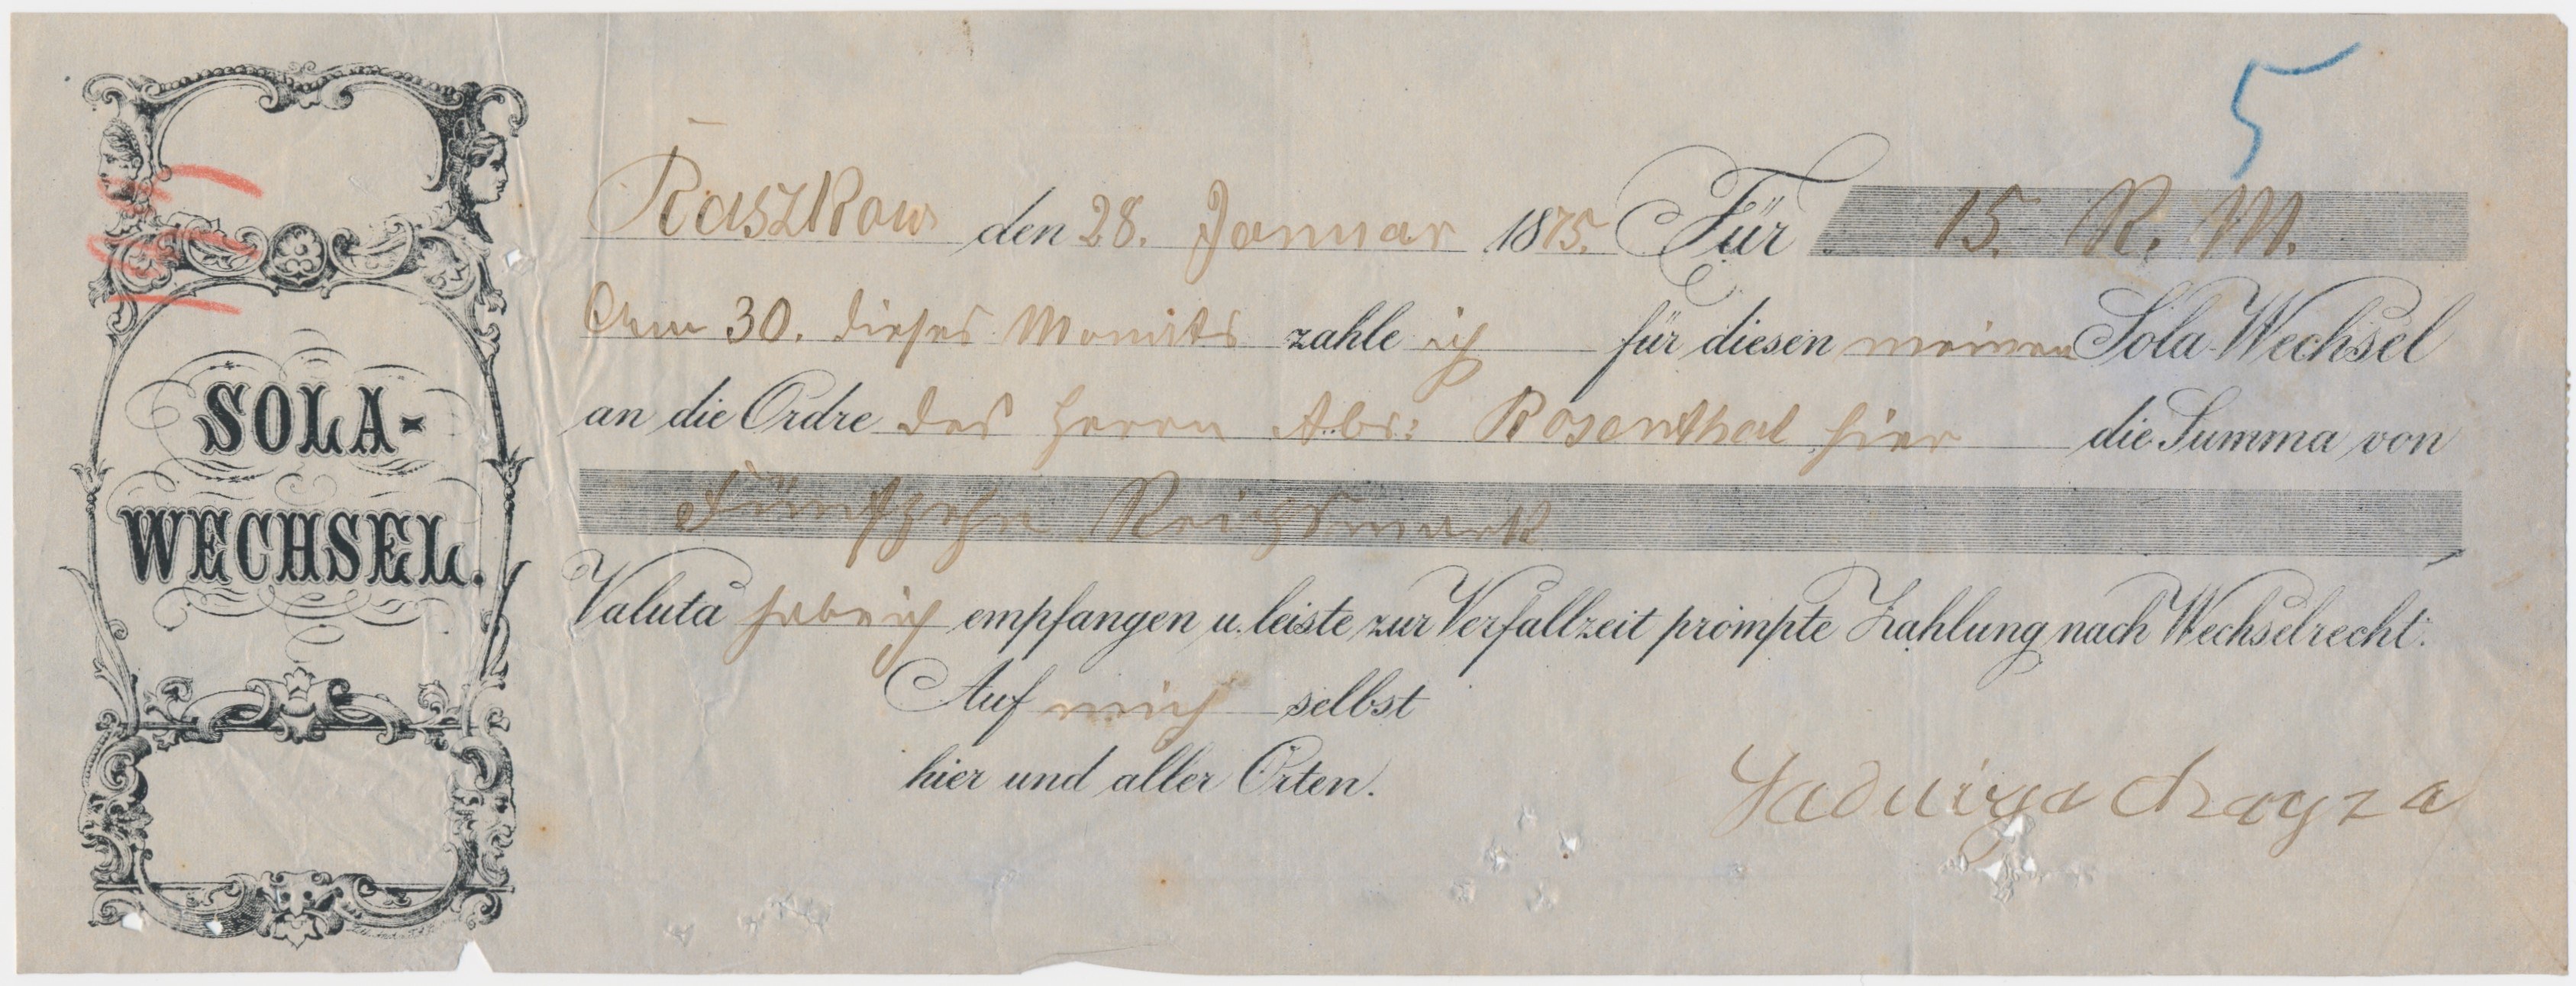 5
Raszkow den 28. Januar 1875. Für 15. R. M.
Am 30. dieses Monats zahle ich für diesen meinen Sola-Wechsel
an die Ordre des Herrn Abr: Rosenthal hier die Summa von
Fünfzehn Reichsmark
Valuta habe ich empfangen u. leiste zur Verfallzeit prompte Zahlung nach Wechselrecht.
Auf mich selbst
hier und aller Orten.
Jadwiga
SOLA-
WECHSEL.